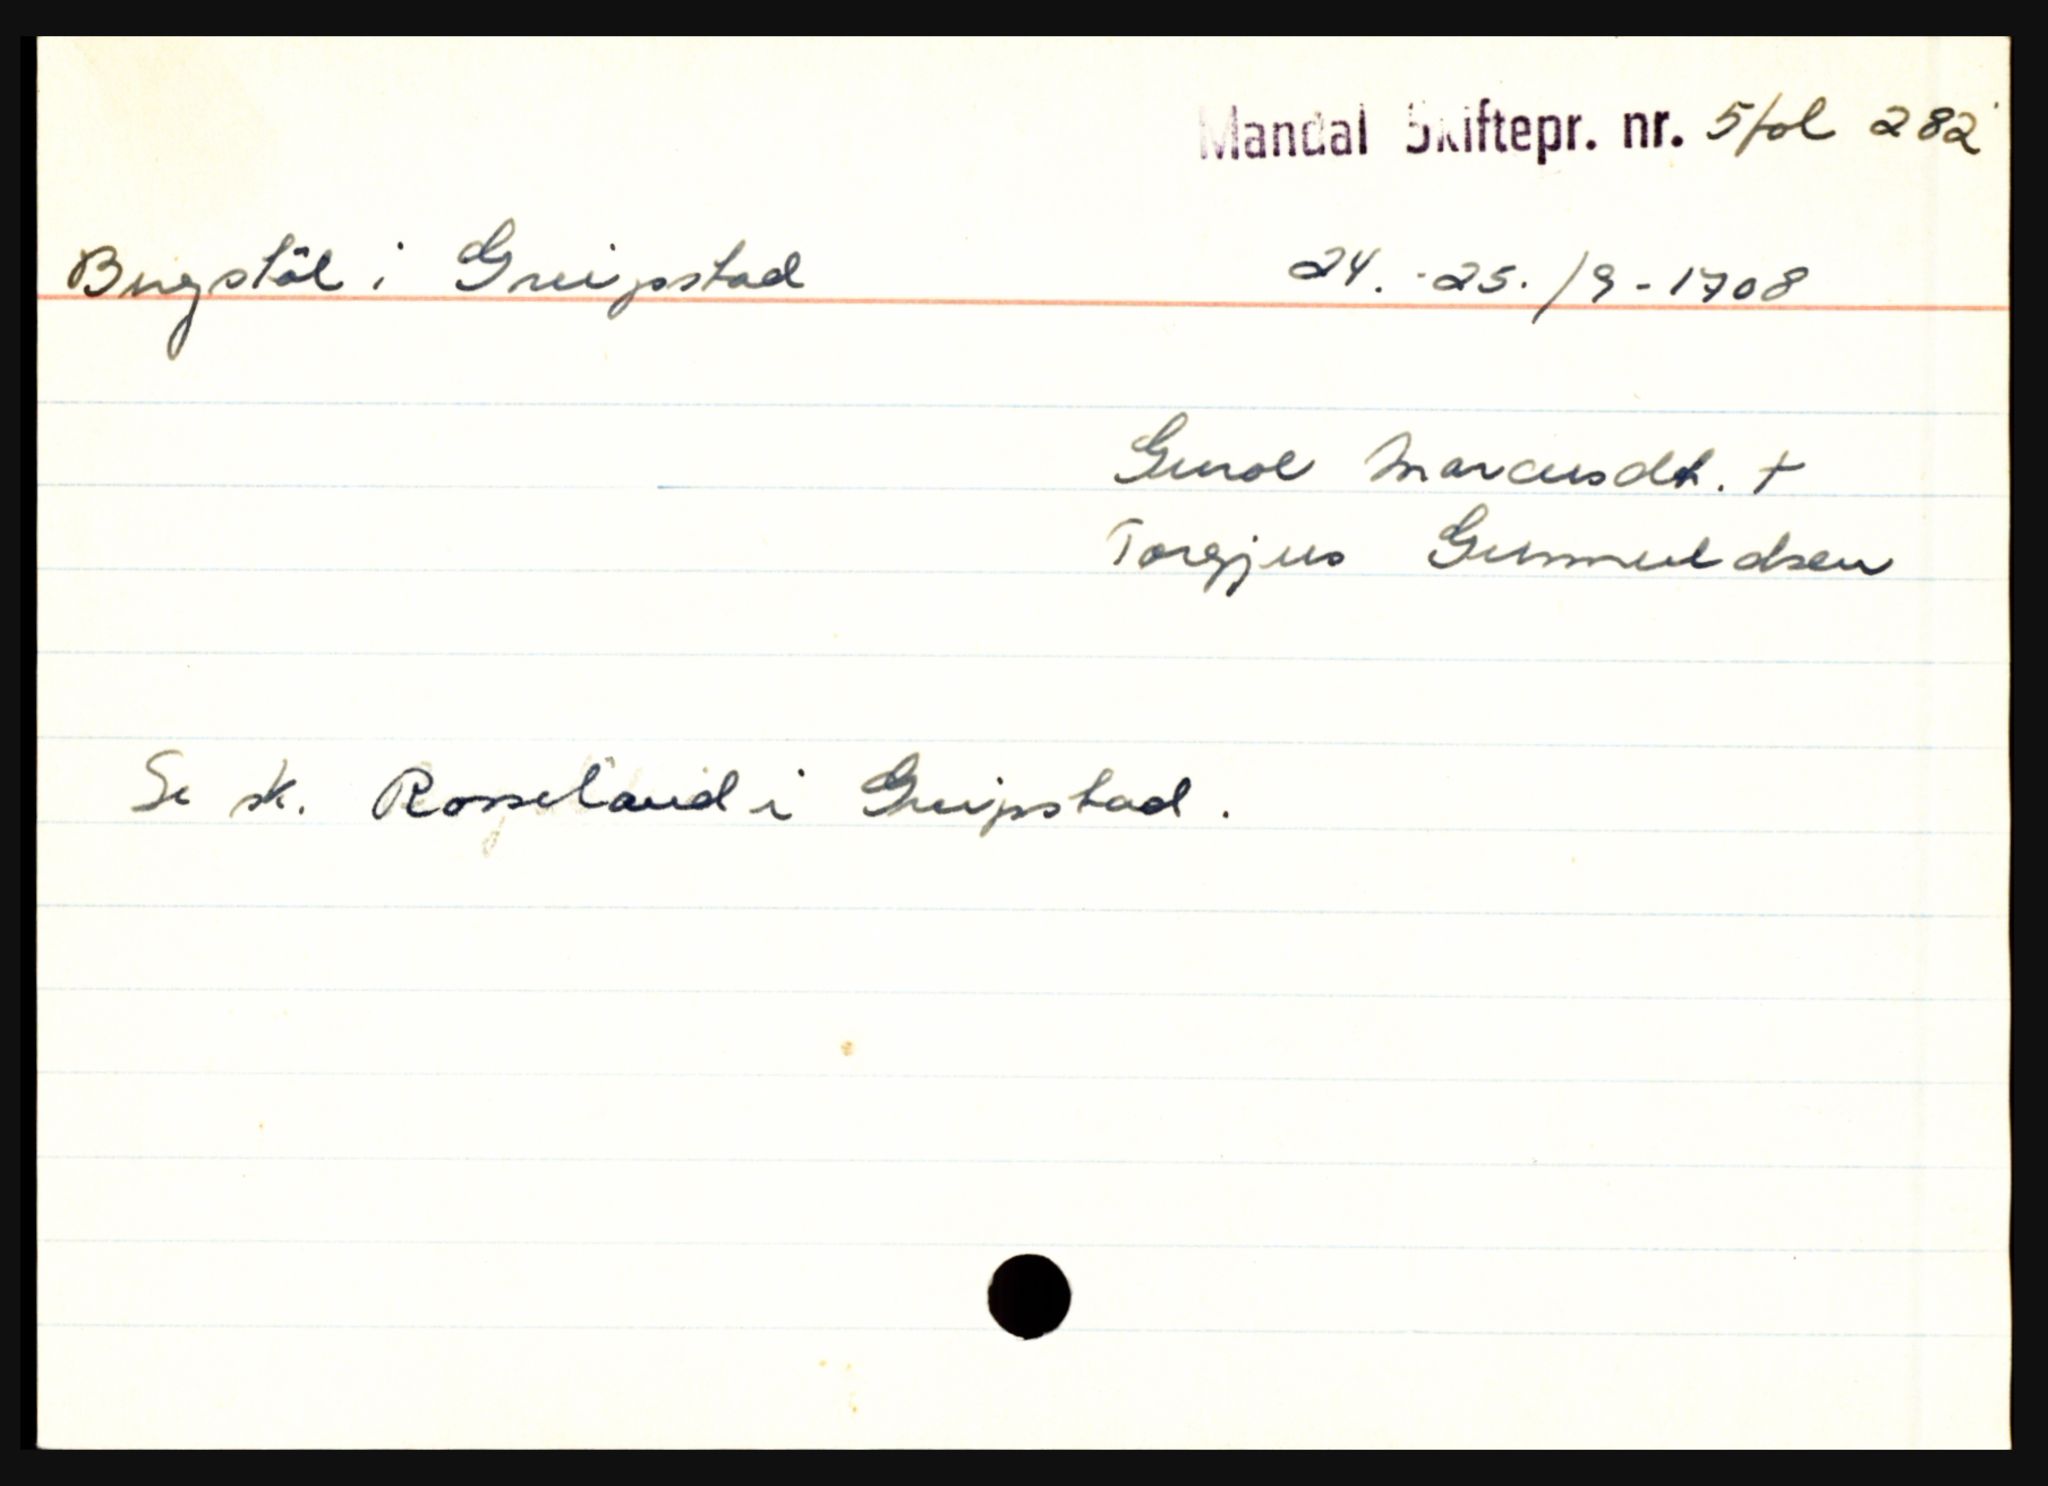 Mandal Skiftepr. nr. 5 fol 282
Bugstöl i Greipstad 24.-25./9-1708
Gurol Marcusdt. +
Torgjus Gunnuldsen
Se sk. Rosseland i Greipstad.